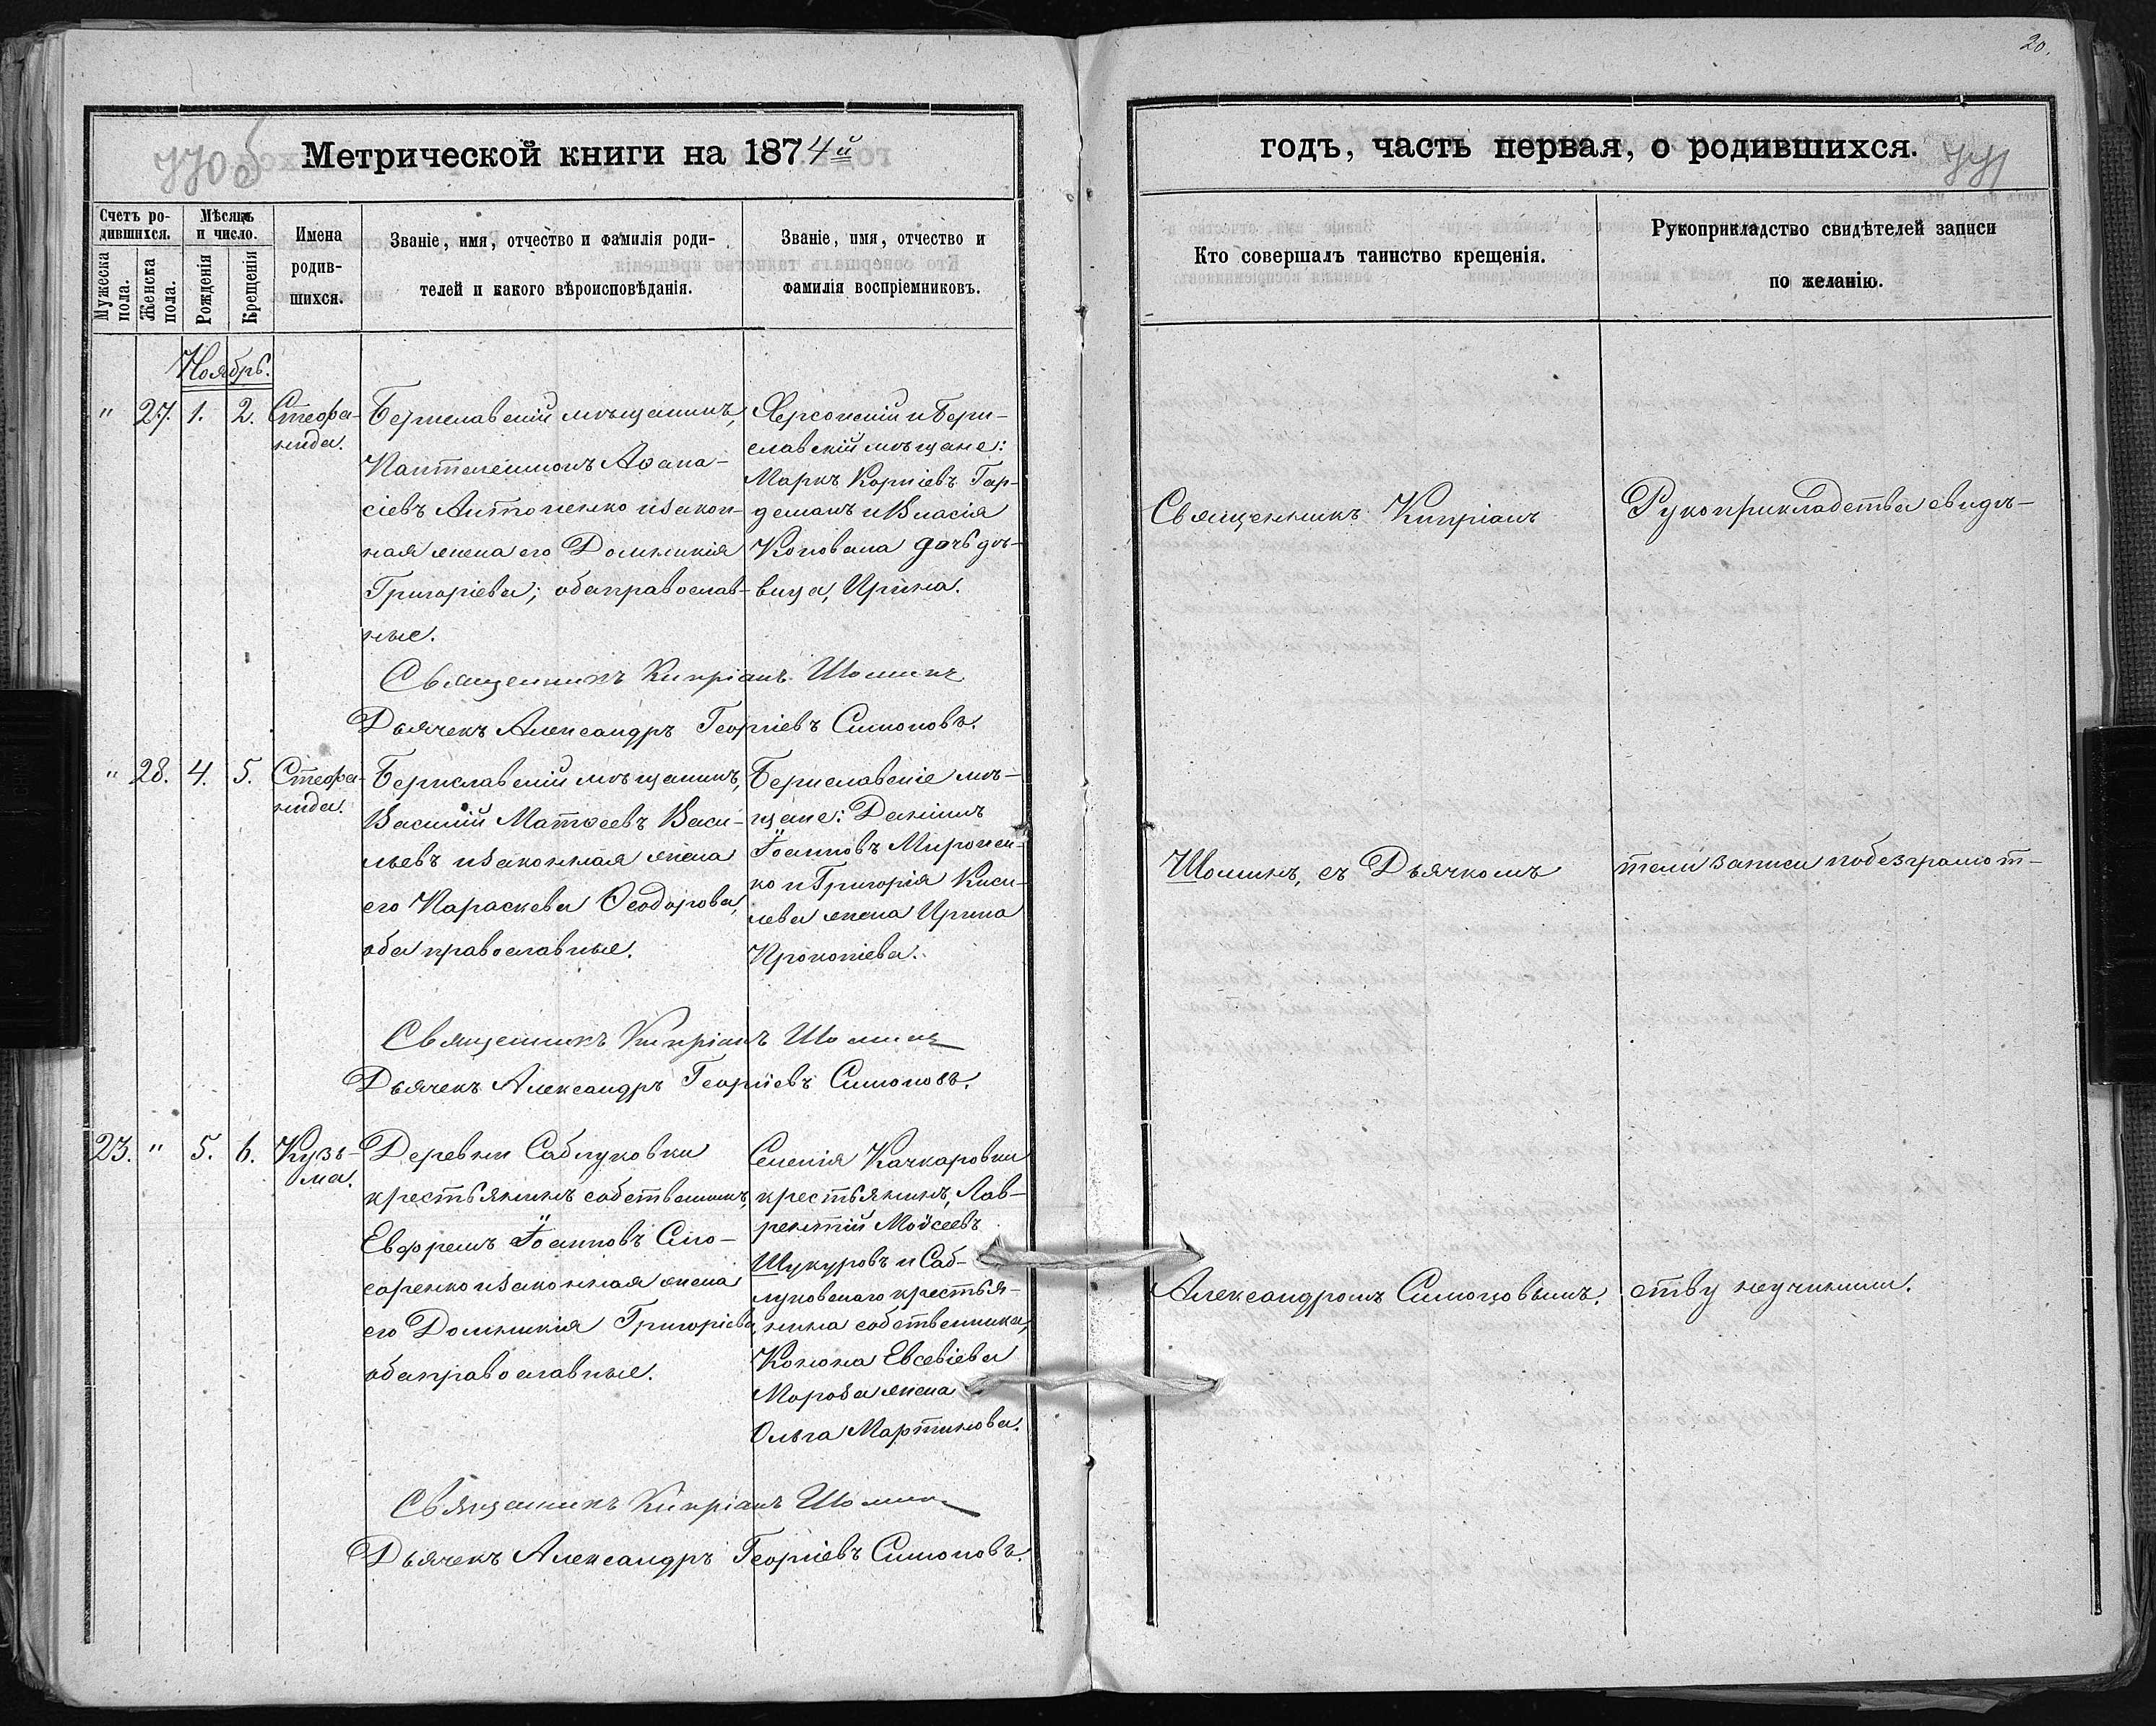 20.
Метрической книги на 1874й
годъ, часть первая, о родившихся.
771
Счетъ ро-
дившихся.
Мужеска пола.
Женска пола.
Мѣсяцъ
и число.
Рожденія
Крещенія
Имена
родив-
шихся.
Званіе, имя, отчество и фамилія роди-
телей и какого вѣроисповѣданія.
Званіе, имя, отчество и
фамилія воспріемниковъ.
Кто совершалъ таинство крещенія.
Рукоприкладство свидѣтелей записи
по желанію.
Ноябрь.
" 27. 1. 2. Стефа-
нида.
Бериславскій мѣщанинъ,
Пантелеимонъ Аѳана-
сіевъ Антоненко и закон-
ная жена его Домникія
Григоріева; оба православ-
ные.
Херсонскій и Бери-
славскій мѣщане:
Маркъ Корніевъ Гар-
деманъ и Власія
Коновала дочь дѣ-
вица, Ирина.
Священникъ Кипріанъ Шоминъ
Дьячекъ Александръ Георгіевъ Симоновъ.
" 28. 4. 5. Стефа-
нида.
Бериславскій мѣщанинъ,
Василій Матѳеевъ Васи-
льевъ и законная жена
его Параскева Ѳеодорова,
оба православные.
Бериславскіе мѣ-
щане: Даніилъ
Іоанновъ Миронен-
ко и Григорія Киси-
лева жена Ирина
Прокопіева.
Священникъ Кипріанъ Шоминъ
Дьячекъ Александръ Георгіевъ Симоновъ.
23. " 5. 6. Кузь-
ма.
Деревни Саблуковки
крестьянинъ собственникъ,
Евфремъ Іоанновъ Слю-
саренко и законная жена
его Домникія Григоріева,
оба православные.
Селенія Качкаровки
крестьянинъ, Лав-
рентій Моѵсеевъ
Шукуровъ и Саб-
луковскаго крестья-
нина собственника,
Конона Евсевіева
Мороза жена
Ольга Мартинова.
Священникъ Кипріанъ Шоминъ
Дьячекъ Александръ Георгіевъ Симоновъ.
Священникъ Кипріанъ
Шоминъ, съ Дьячкомъ
Александромъ Симоновымъ.
Рукоприкладства свидѣ-
тели записи по безграмот-
ству неучинили.